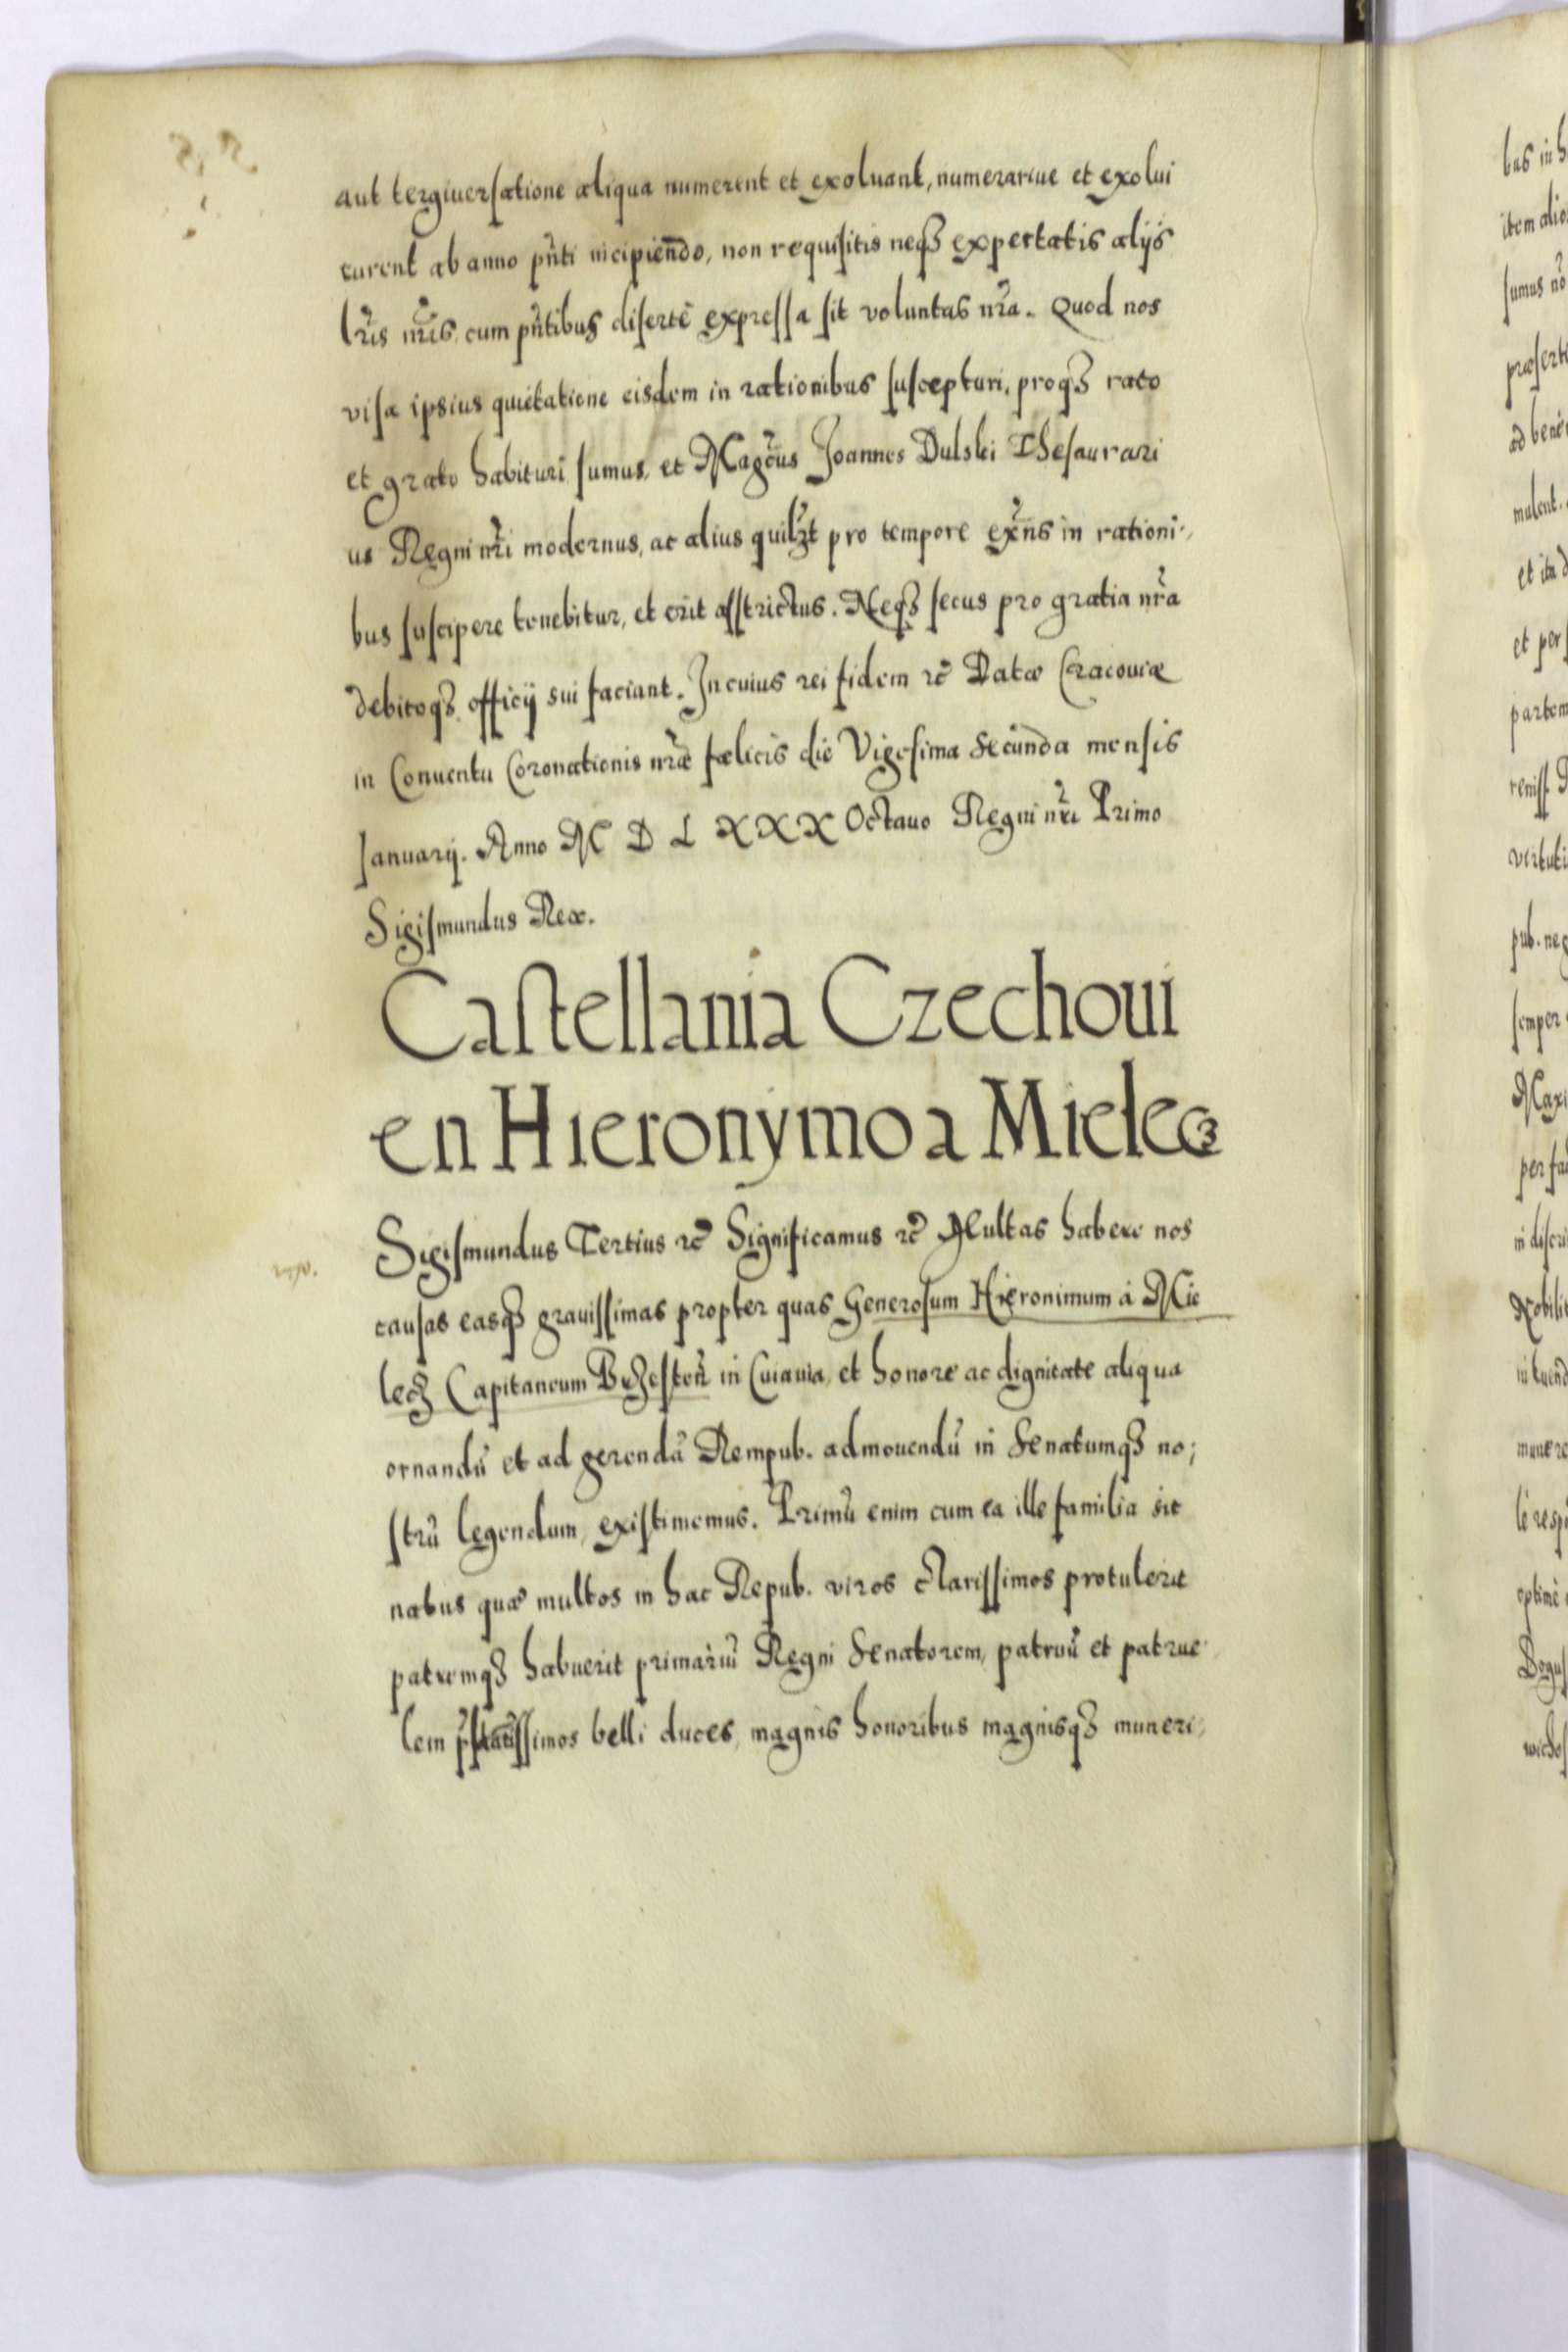 aut tergiuersatione aliqua numerent et exoluant, numerariue et exolui
curent ab anno pñti incipiendo, non requisitis neqȝ expectatis alijs
lr̃is nr̃is, cum pñtibus disertè expressa sit voluntas nr̃a. Quod nos
visa ipsius quietatione eisdem in rationibus suscepturi, proqȝ rato
et grato habituri sumus, et Magc̃us Joannes Dulski Thesaurari
us Regni nr̃i modernus, ac alius quilȝt pro tempore ex̃ns in rationi-
bus suscipere tenebitur, et erit asstrictus. Neqȝ secus pro gratia nr̃a
debitoqȝ officij sui faciant. In cuius rei fidem ꝛc̃ Datæ Cracouiæ
in Conuentu Coronationis nr̃æ fælicis die Vigesima secunda mensis
Januarij. Anno M D L XXX Octauo Regni nr̃i Primo
Sigismundus Rex.
Castellania Czechoui
en Hieronymo a Mielecz
Sigismundus Tertius ꝛc̃ Significamus ꝛc̃ Multas habere nos
causas easqȝ grauissimas propter quas Generosum Hieronimum à Mie
lecz Capitaneum Brzesteñ in Cuiauia, et honore ac dignitate aliqua
ornandũ et ad gerendã Rempub. admouendũ in Senatumqȝ no;
strũ legendum, existimemus. Primũ enim cum ea ille familia sit
natus quæ multos in hac Repub. viros clarissimos protulerit
patremqȝ habuerit primariũ Regni Senatorem, patruũ et patrue
lem p̃stantissimos belli duces, magnis honoribus magnisqȝ muneri,